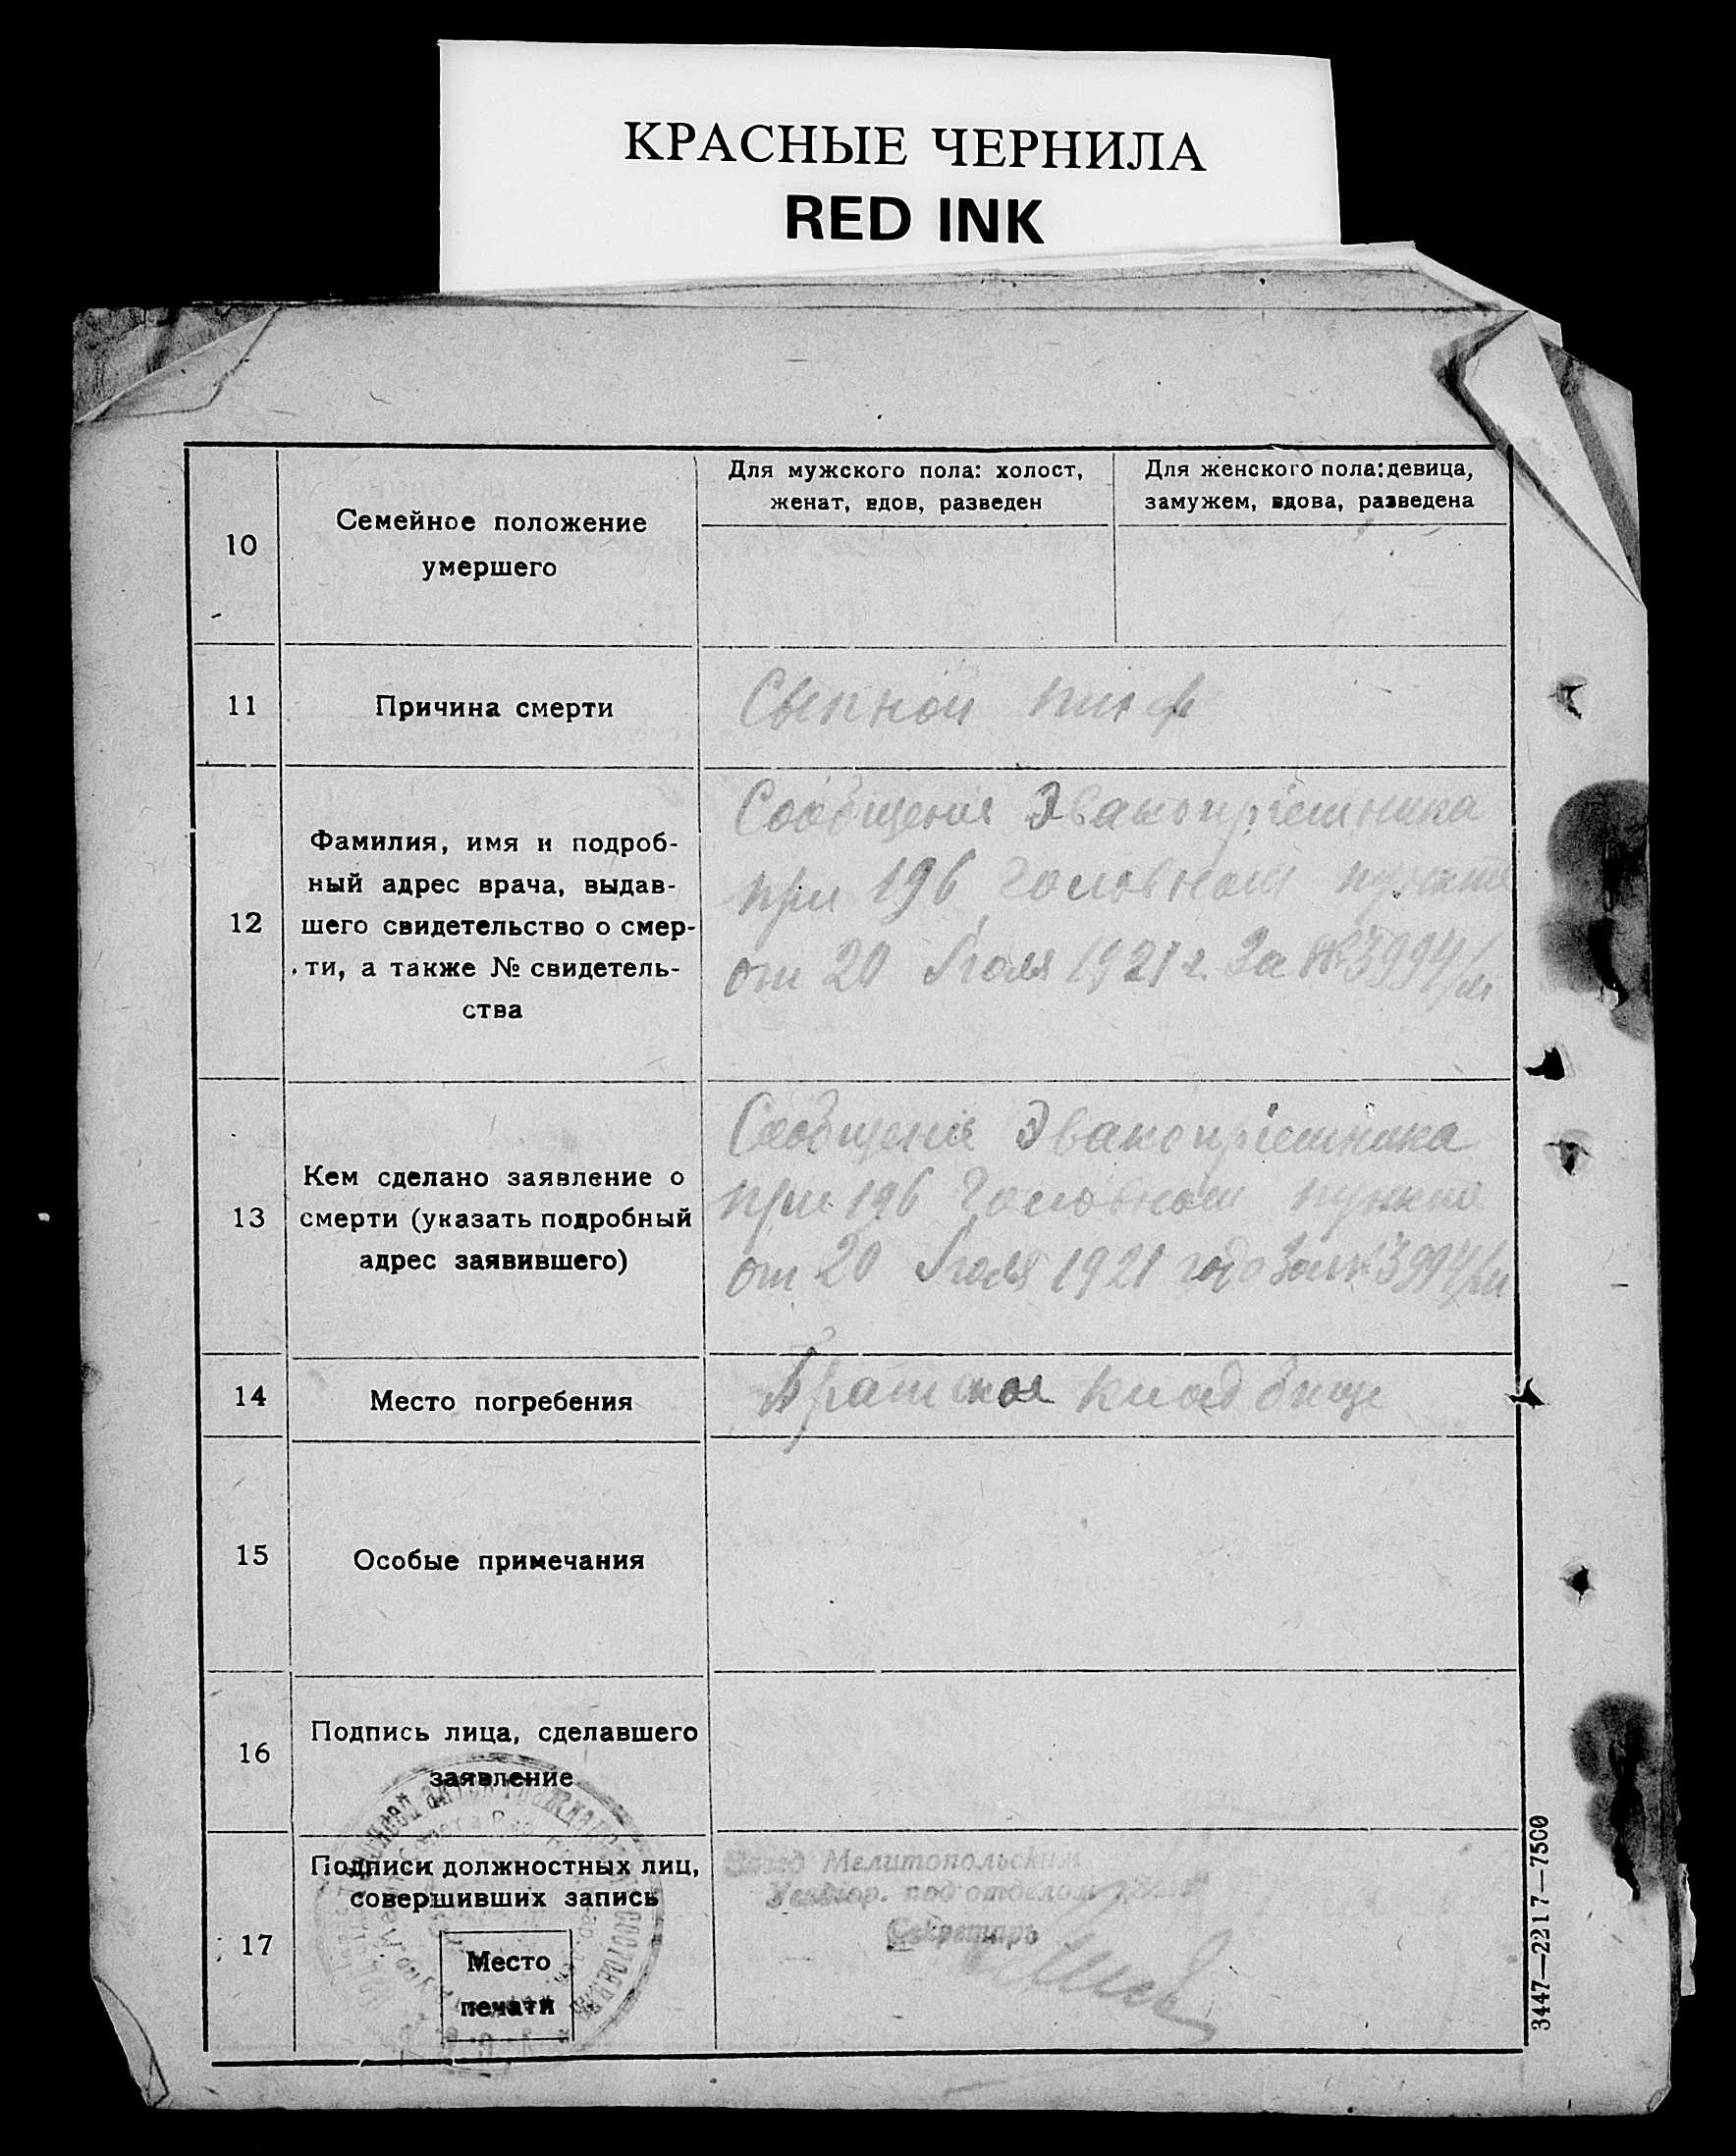 КРАСНЫЕ ЧЕРНИЛА
RED INK
10
Семейное положение
умершего
Для мужского пола: холост,
женат, вдов, разведен
Для женского пола: девица,
замужем, вдова, разведена
11
Причина смерти
Сыпной тиф
12
Фамилия, имя и подроб-
ный адрес врача, выдав-
шего свидетельство о смер-
ти, а также № свидетель-
ства
Сообщения Эвакоприемника
при 196 головном пункте
от 20 Июля 1921 г. За № 3994/м
13
Кем сделано заявление о
смерти (указать подробный
адрес заявившего)
Сообщения Эвакоприемника
при 196 головном пункте
от 20 Июля 1921 года За № 3994/м
14
Место погребения
Братское кладбище
15
Особые примечания
16
Подпись лица, сделавшего
заявление
17
Подписи должностных лиц,
совершивших запись
Место
печати
Мелитопольским
под'отделом
Секретарь
3447—2217—7500